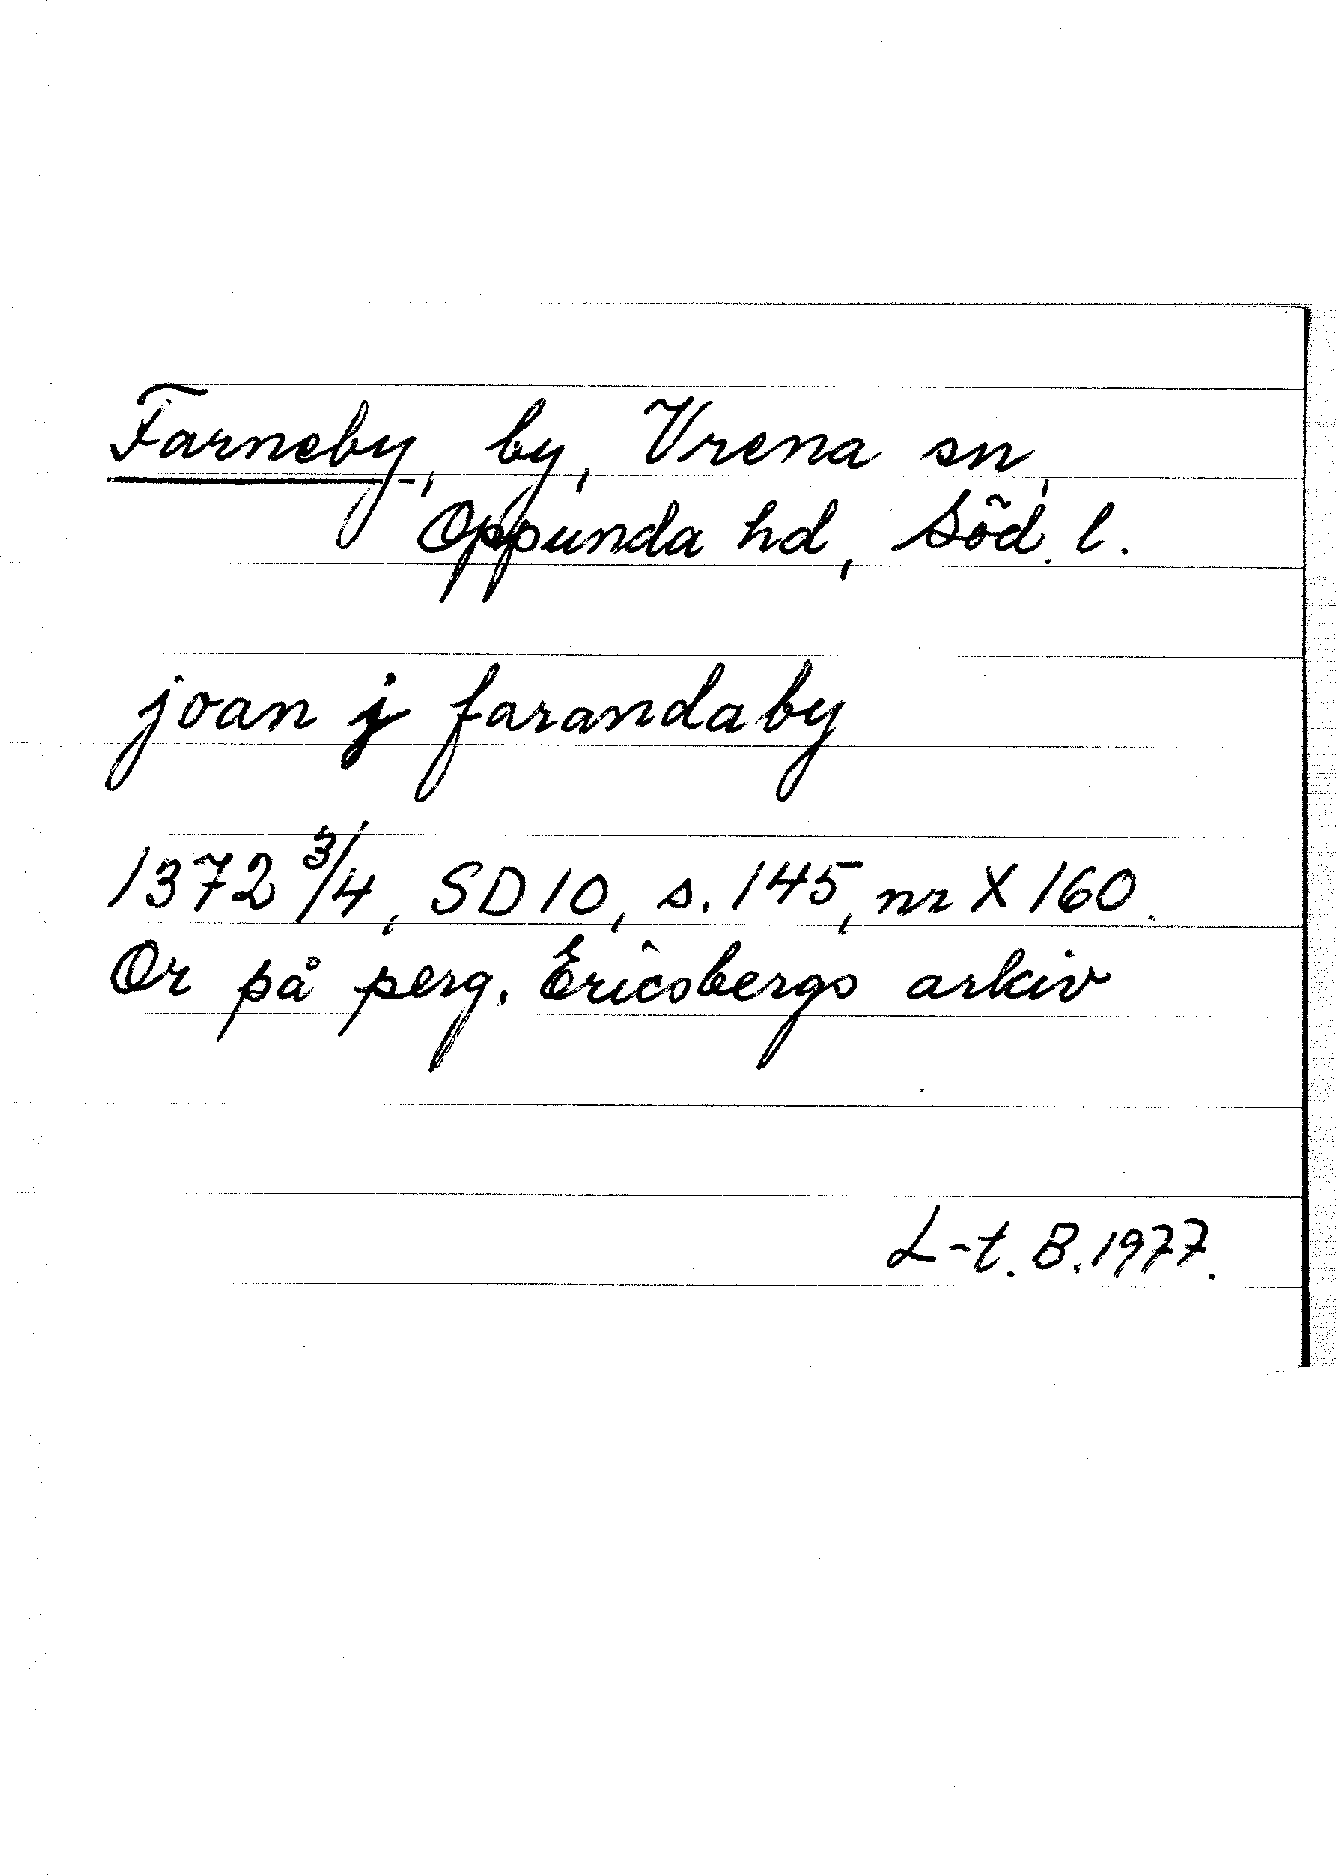 Farneby, by, Vrena sn,
Oppunda hd, Söd. l.
joan j farandaby
1372 3/4, SD 10, s. 145, nr X 160.
Or på perg. Ericsbergs arkiv
L-t. B. 1977.